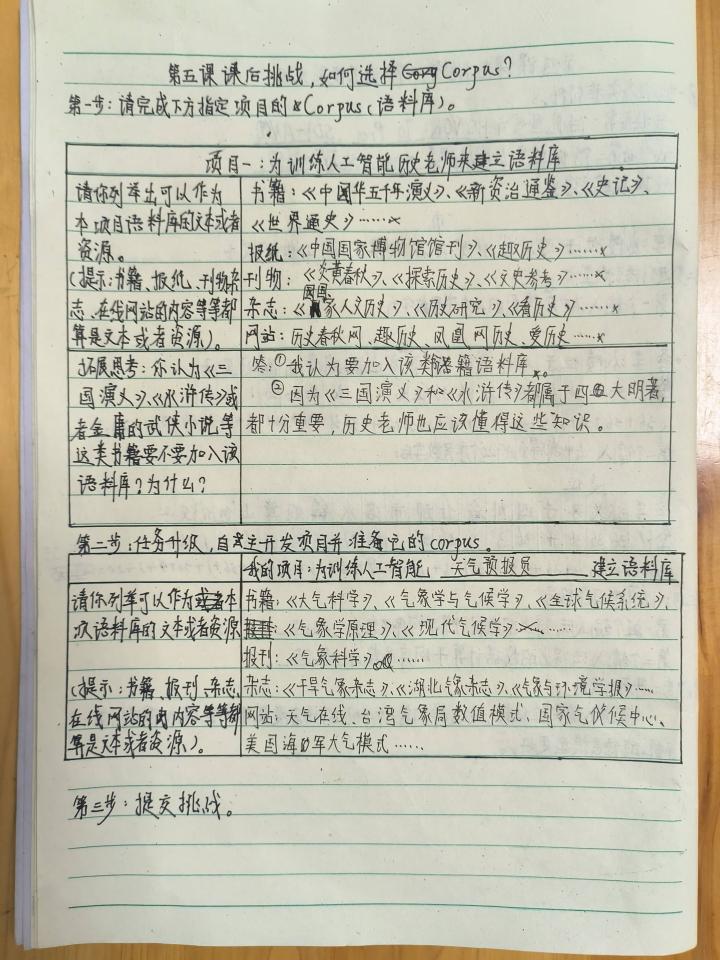 第五课课后挑战，如何选择Corpus？
第一步：请完成下方指定项目的Corpus（语料库）。
项目一：为训练人工智能历史老师来建立语料库
请你列举出可以作为
本项目语料库的文本或者
资源。
（提示：书籍、报纸、刊物杂
志、在线网站的内容等等都
算是文本或者资源）。
书籍：《中国华五千年演义》、《新资治通鉴》、《史记》、
《世界通史》……
报纸：《中国国家博物馆馆刊》、《趣历史》……
刊物：《炎黄春秋》、《探索历史》、《文史参考》……
杂志：《国家人文历史》、《历史研究》、《看历史》……
网站：历史春秋网、趣历史、凤凰网历史、爱历史……
拓展思考：你认为《三
国演义》、《水浒传》或
者金庸的武侠小说等
这类书籍要不要加入该
语料库？为什么？
答：①我认为要加入该类书籍语料库。
②因为《三国演义》和《水浒传》都属于四大明著，
都十分重要，历史老师也应该懂得这些知识。
第二步：任务升级，自主开发项目并准备它的corpus。
我的项目：为训练人工智能 天气预报员 建立语料库
请你列举可以作为本
项语料库的文本或者资源
（提示：书籍、报刊、杂志、
在线网站的内容等等都
算是文本或者资源）。
书籍：《大气科学》、《气象学与气候学》、《全球气候系统》、
《气象学原理》、《现代气候学》……
报刊：《气象科学》……
杂志：《干旱气象杂志》、《湖北气象杂志》、《气象与环境学报》……
网站：天气在线、台湾气象局数值模式、国家气候中心、
美国海军大气模式……
第三步：提交挑战。